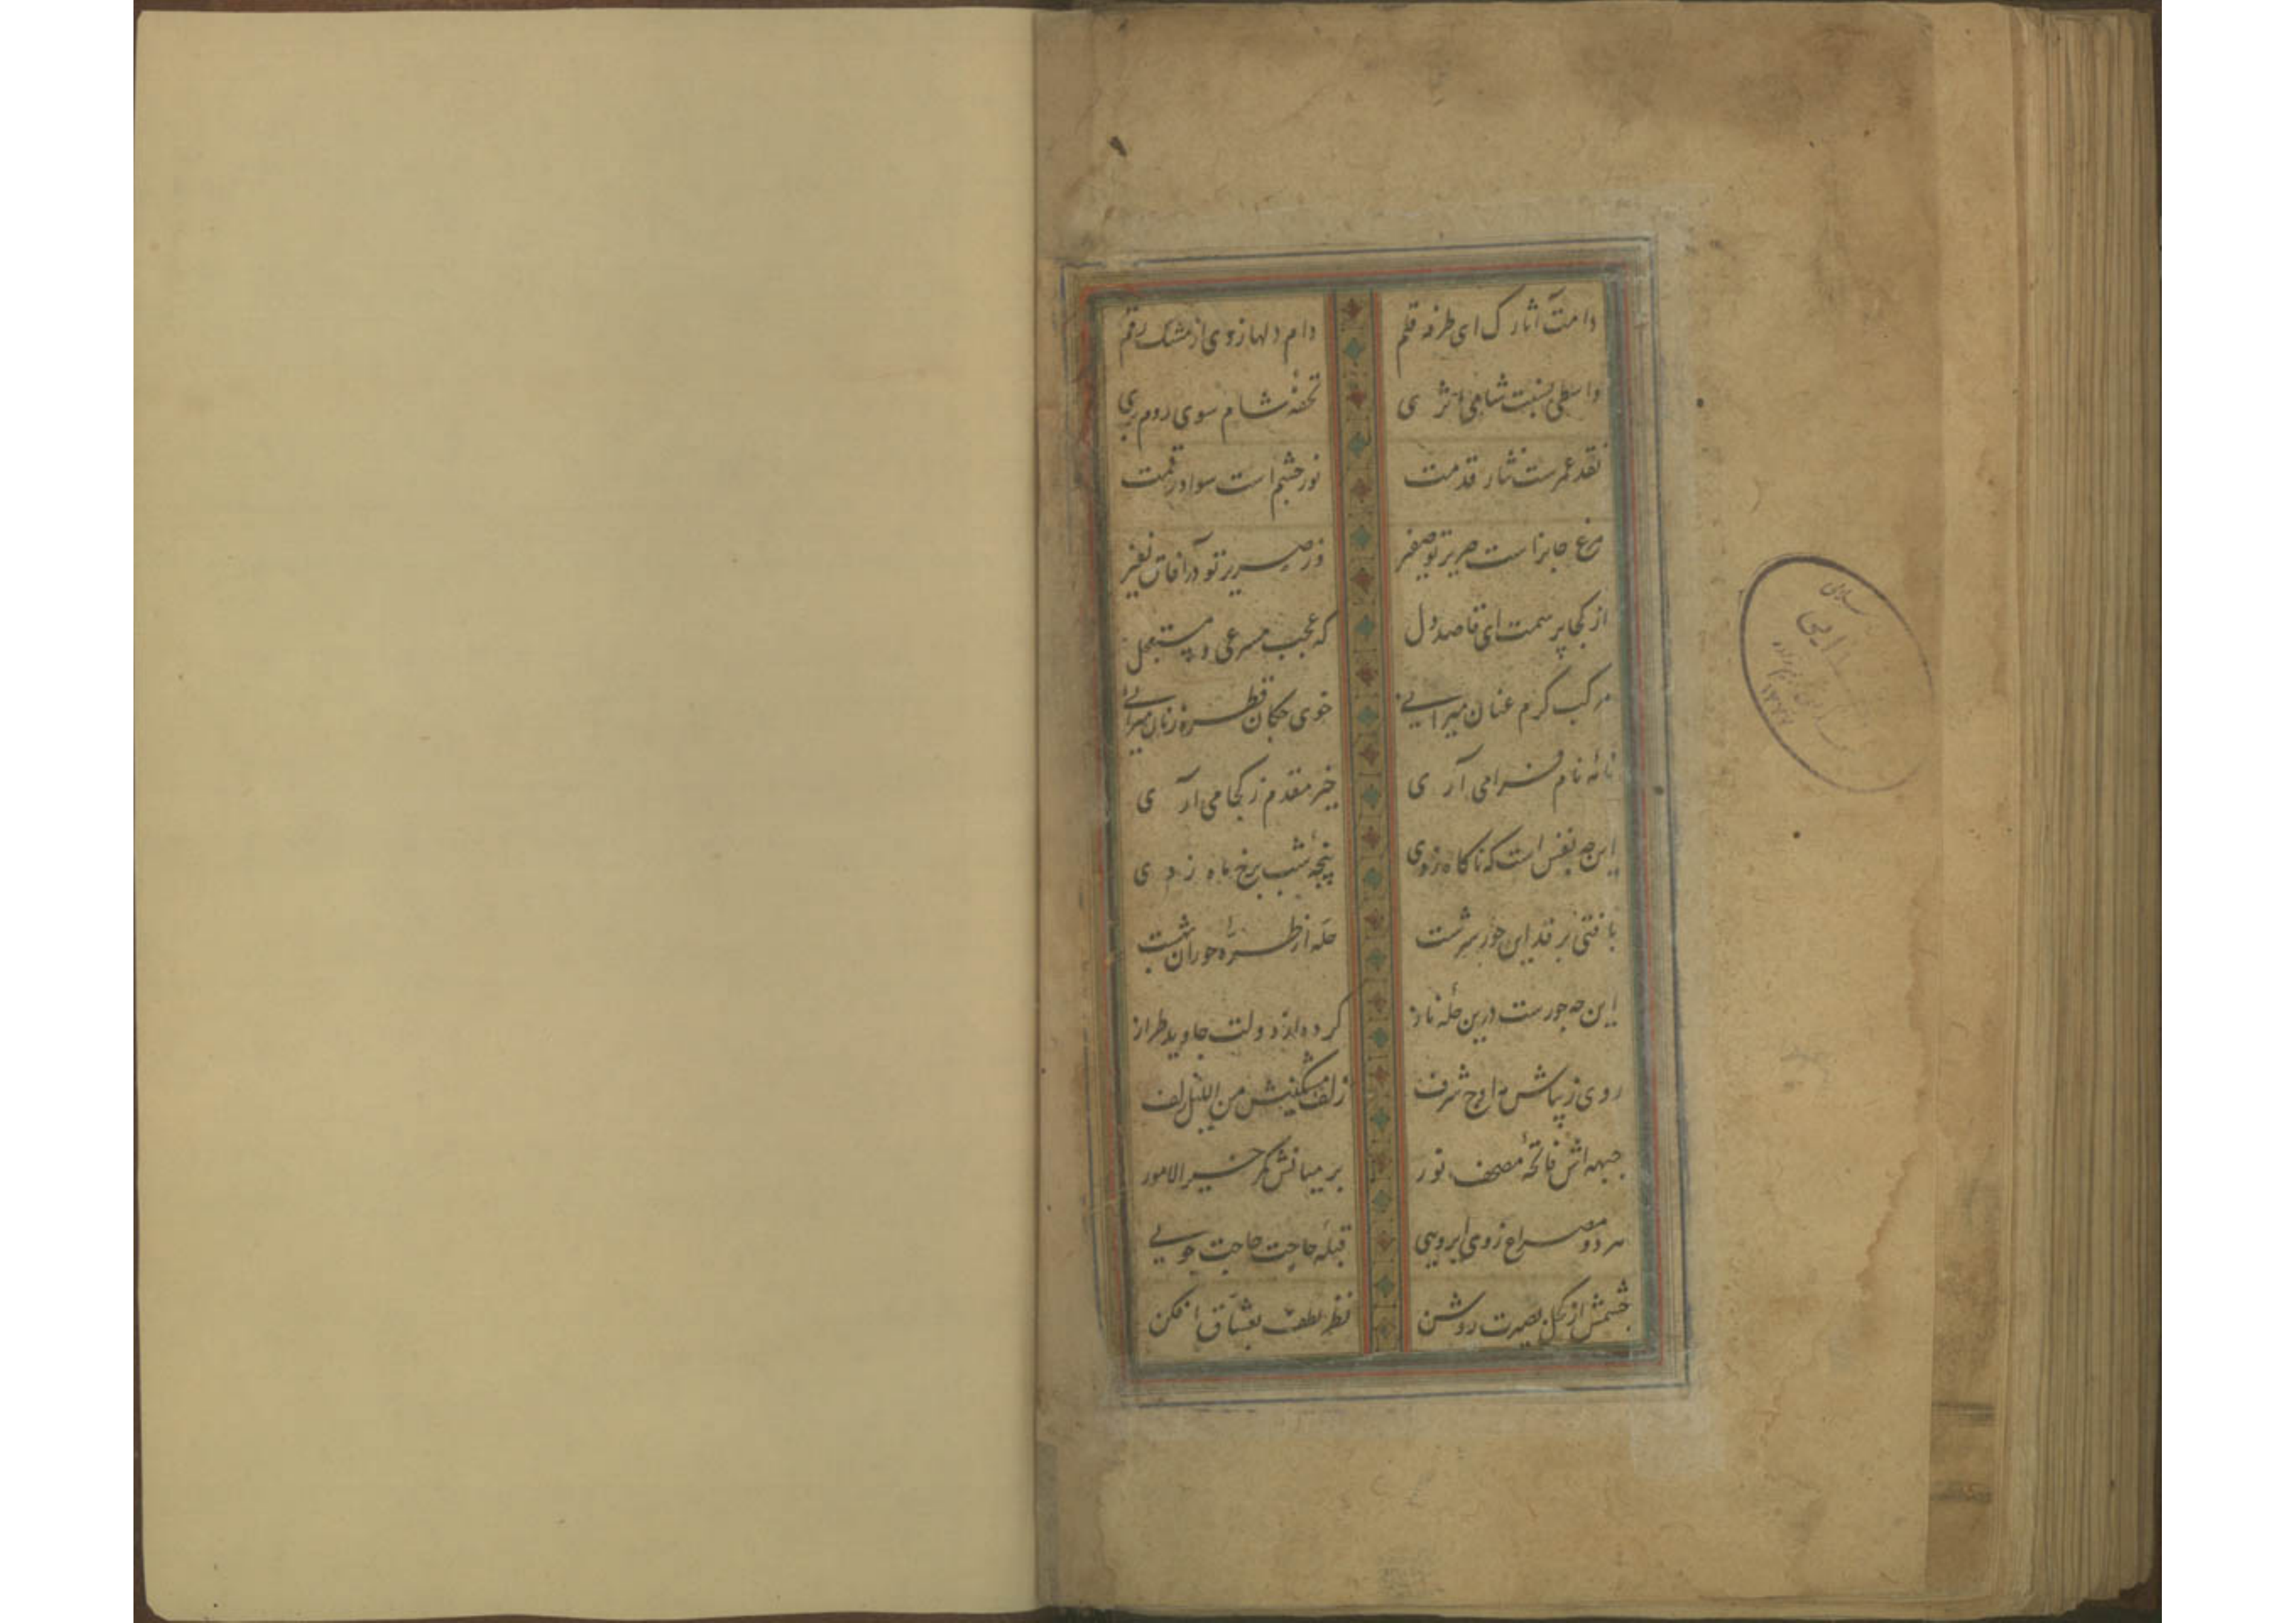 دامت آثارک ای طرفه قلم دام دلها زدی از مشک رقم
واسطی نسبت شامی اثری تحفهٔ شام سوی روم بری
نقد عمرست نثار قدمت نور چشم است سواد رقمت
مرغ جانراست صریر تو صفیر وز صریر تو در آفاق نفیر
از کجا پرسمت ای قاصد دل که عجب مسرعی و مستعجل
مرکب گرم عنان میرانی خوی چکان قطره زنان میرانی
نامه نام فرامی آری خیر مقدم ز کجا می آری
این چه نفس است که ناگاه زدی پنجهٔ شب برخ ماه زدی
بافتی بر قد این حور سرشت حله از طرهٔ حوران بهشت
این چه حورست درین حلهٔ ناز کرده از دولت جاوید طراز
روی زیباش به اوج شرف زلف مشکینش من اللیل زلف
جبهه اش فاتحهٔ مصحف نور بر میانش کمر خیر الامور
هر دو مصراع زوی ابرویی قبلهٔ حاجت حاجت جویی
چشمش از کحل بصیرت روشن نظر لطف بعشاق افکن